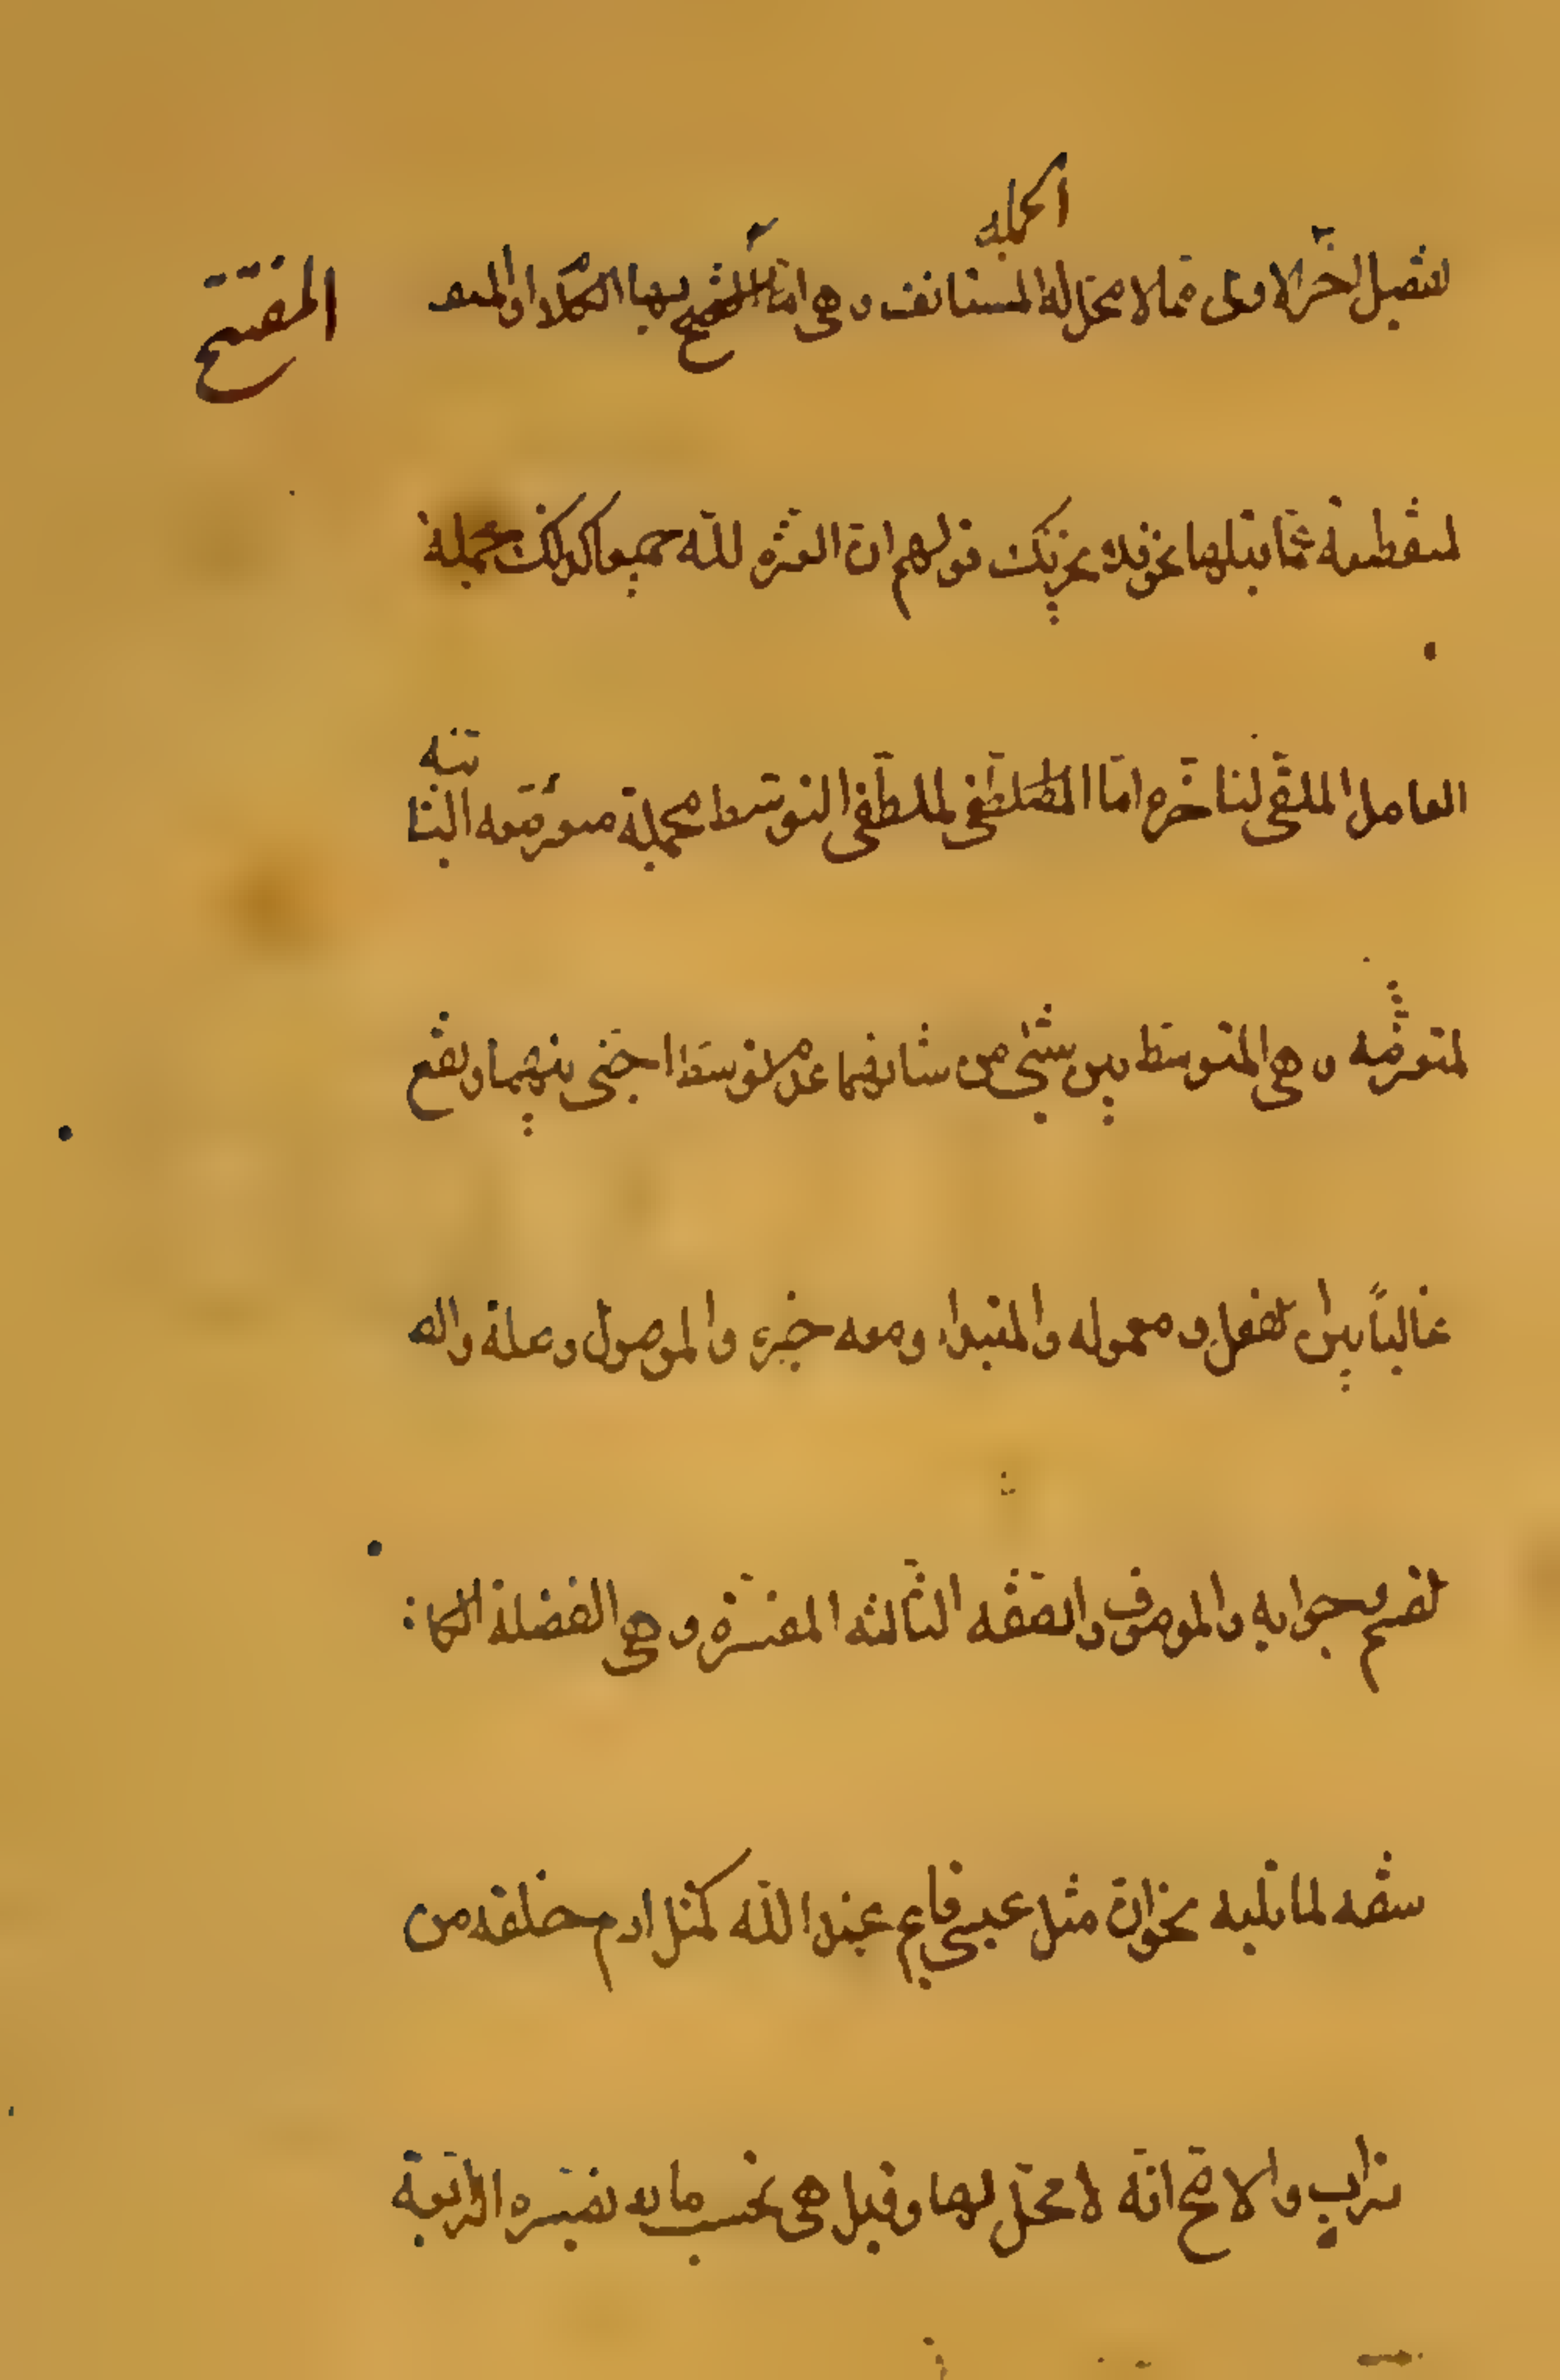 لتفصيل اخر الاولى مما لا محل له المستانفه وهى اما المفتتح بها الكلام او المنقـ
الجملة
المفتتح
لمنقطعة عما قبلها نحو فلا يحزنك قولهم ان العزة لله جميعا كذلك جملة
العامل الملغى لتاخره اما الملغى لتوسط فجملة معترضه الثا
نيه
لمعترضه وهى المتوسطة بين شيئين من شانهما عدم توسط اجنبى بينهما وتقع
غالباً بين الفعل ومعموله والمبتداء وخبره والموصول وصلة والـ
لقسم وجوابه والموصوف والصفه الثالثه المفسره وهى الفضلة الكا
شفه لما تليه نحو ان مثل عيسى عند الله كمثل ادم خلقه من
تراب والاصح انه لا محل لها وقيل هى بحسب ما تفسره الرابعة